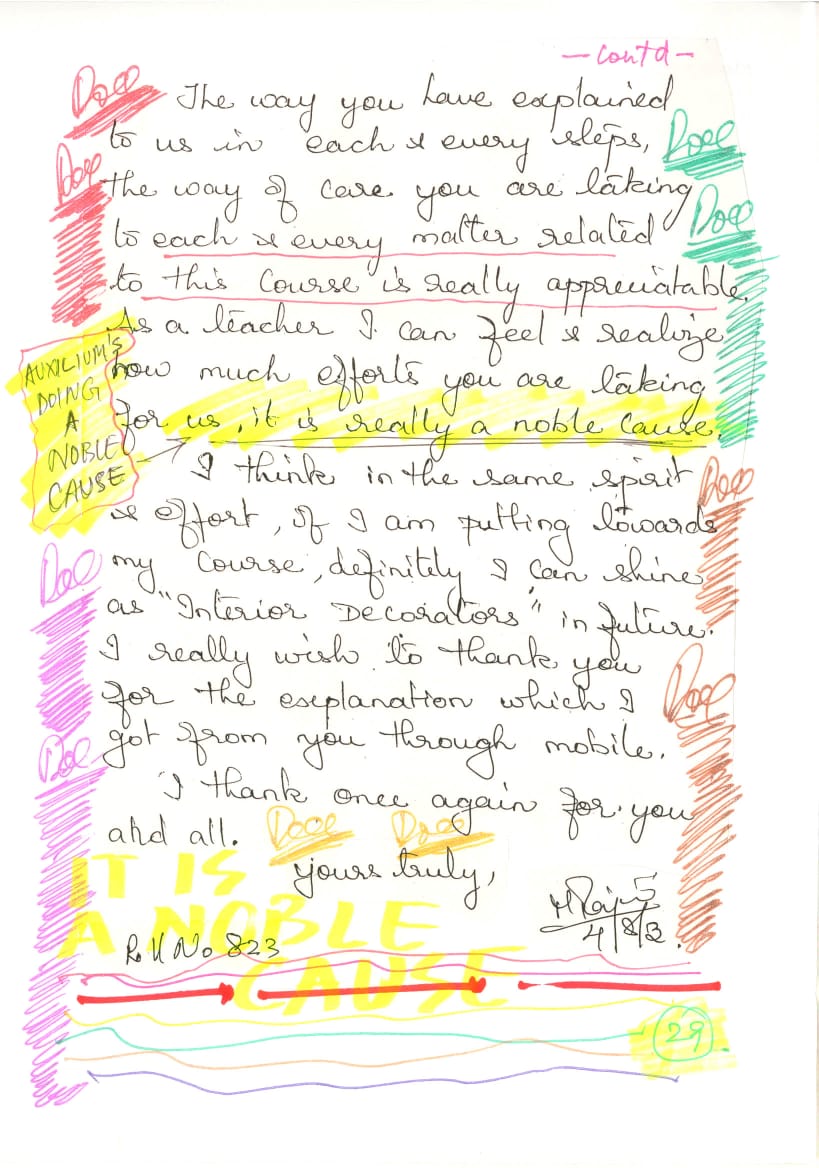 - Contd -
The way you have explained
to us in each & every steps,
the way of care you are taking
to each & every matter related
to this Course is really appreciatable.
As a teacher I can feel & realize
how much efforts you are taking
for us, it is really a noble cause.
AUXILIUM'S
DOING
A
NOBLE
CAUSE
I think in the same spirit
& effort, if I am putting towards
my course, definitely I can shine
as "Interior Decorators" in future.
I really wish to thank you
for the explanation which I
got from you through mobile.
I thank once again for you
and all.
yours truly,
IT IS
A NOBLE
CAUSE
R.ll No 823
29